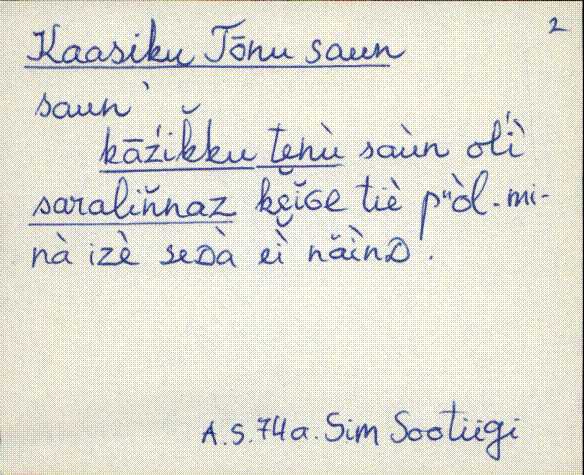 2
Kaasiku Tõnu saun
saun`
kāʑ́ik̆ku tenù saùn oĺì
saraliňnaz kẹiɢe tiè pᵘòl-mi-
nà izè seᴅà eì näìnᴅ.
A.S. 74a. Sim Sootiigi